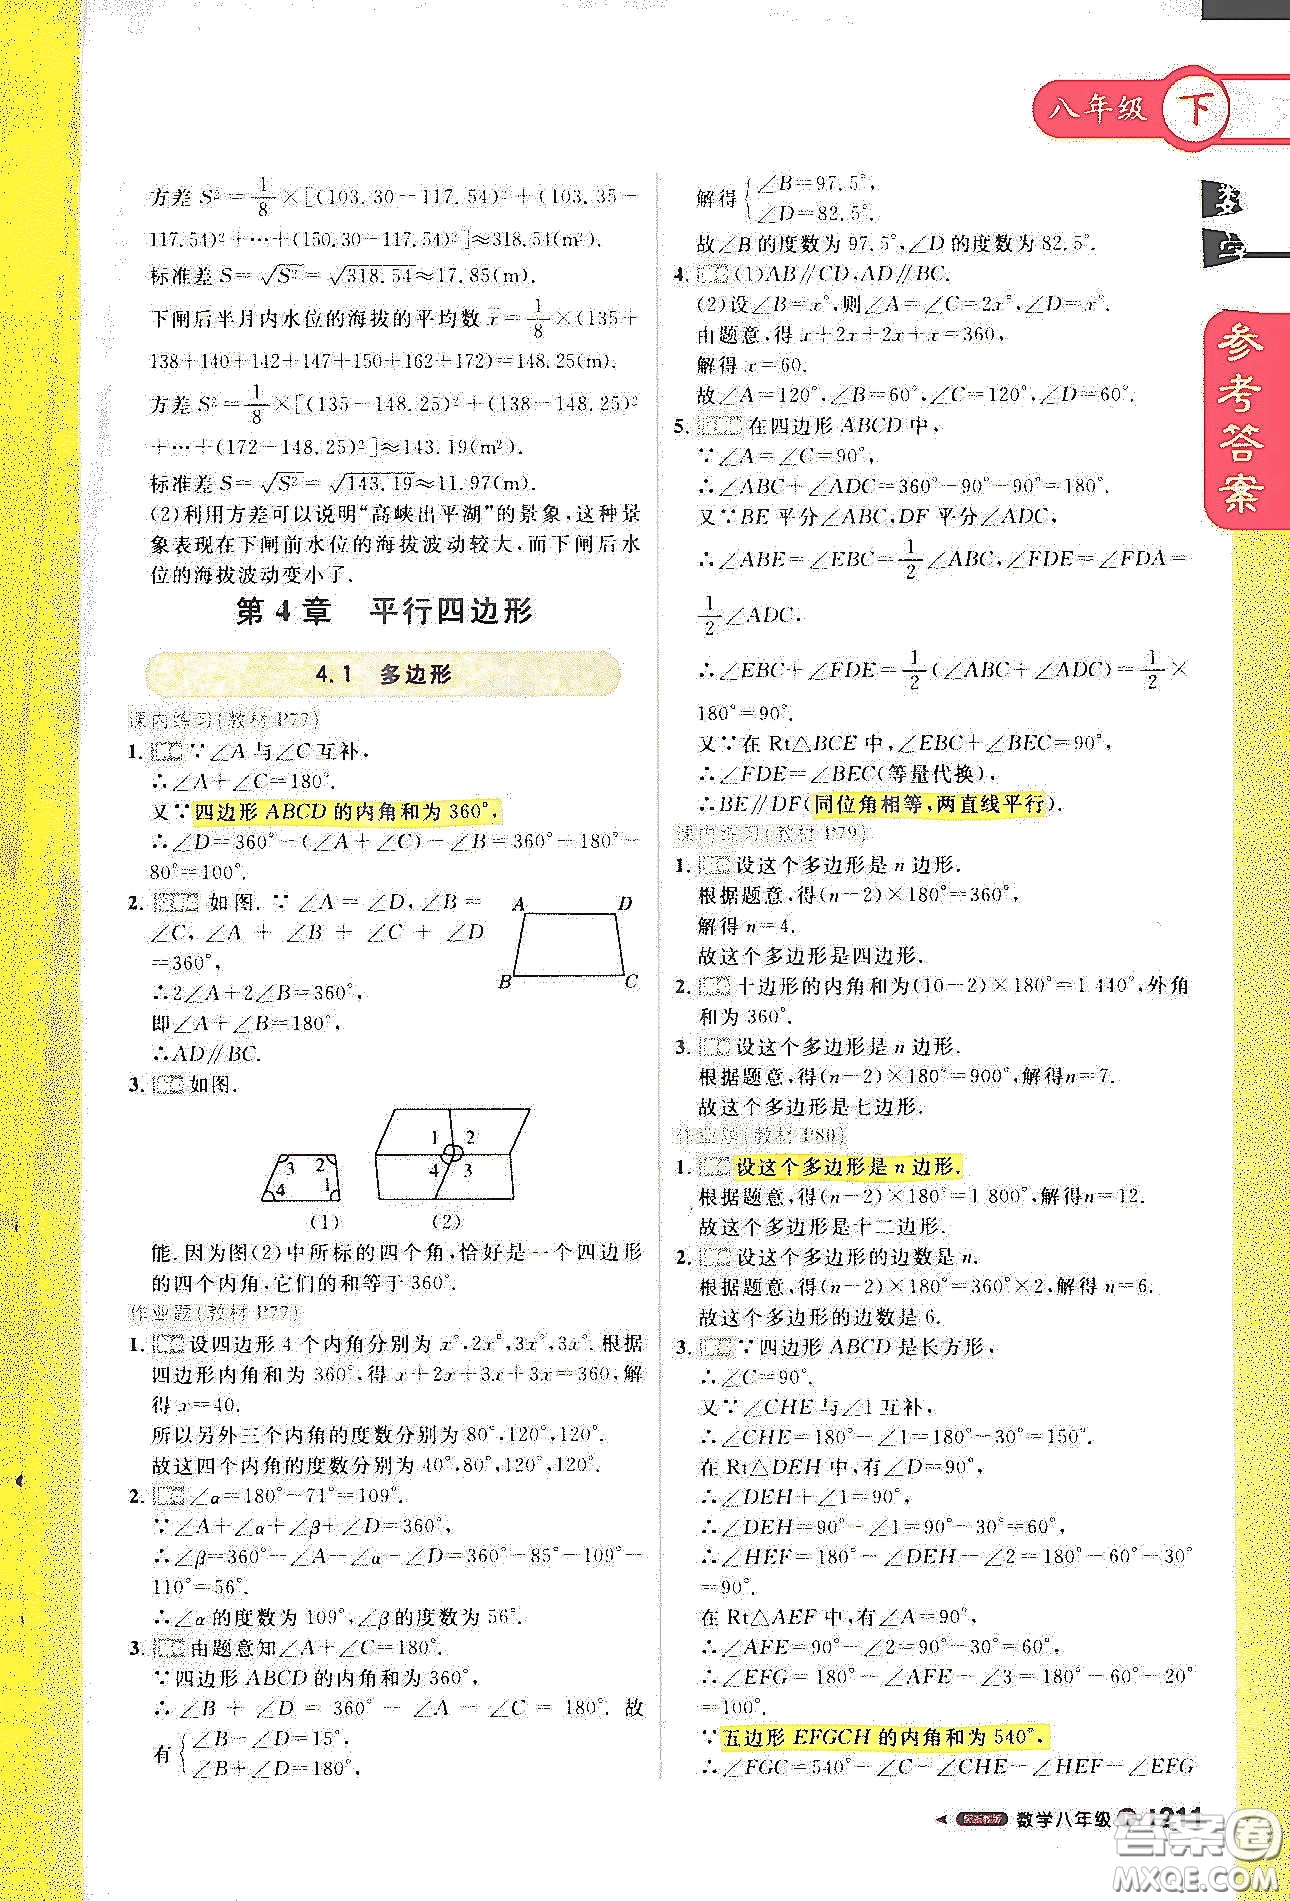 八年级 下
数
学
参考答案
方差 S²=1/8×[(103.30-117.54)²+(103.35-
117.54)²+…+(150.30-117.54)²]≈318.54(m²).
标准差 S=√S²=√318.54≈17.85(m).
下闸后半月内水位的海拔的平均数 x̄=1/8×(135+
138+140+142+147+150+162+172)=148.25(m).
方差 S²=1/8×[(135-148.25)²+(138-148.25)²
+…+(172-148.25)²]≈143.19(m²)
标准差 S=√S²=√143.19≈11.97(m).
(2)利用方差可以说明“高峡出平湖”的景象,这种景
象表现在下闸前水位的海拔波动较大,而下闸后水
位的海拔波动变小了.
第4章 平行四边形
4.1 多边形
课内练习(教材 P77)
1. ∵∠A与∠C互补.
∴∠A+∠C=180°.
又∵四边形ABCD的内角和为360°,
∴∠D=360°-(∠A+∠C)-∠B=360°-180°-
80°=100°.
2. 如图.∵∠A=∠D,∠B=
∠C,∠A+∠B+∠C+∠D
=360°,
∴2∠A+2∠B=360°,
即∠A+∠B=180°,
∴AD∥BC.
A D
B C
3. 如图.
3 2
4 1
(1)
1 2
4 3
(2)
能.因为图(2)中所标的四个角,恰好是一个四边形
的四个内角,它们的和等于360°.
作业题(教材 P77)
1. 设四边形4个内角分别为x°,2x°,3x°,3x°.根据
四边形内角和为360°,得x+2x+3x+3x=360,解
得x=40.
所以另外三个内角的度数分别为80°,120°,120°.
故这四个内角的度数分别为40°,80°,120°,120°.
2. ∠α=180°-71°=109°.
∵∠A+∠α+∠β+∠D=360°,
∴∠β=360°-∠A-∠α-∠D=360°-85°-109°-
110°=56°.
∴∠α的度数为109°,∠β的度数为56°.
3. 由题意知∠A+∠C=180°.
∵四边形ABCD的内角和为360°,
∴∠B+∠D=360°-∠A-∠C=180°.故
有{∠B-∠D=15°,
∠B+∠D=180°.
解得{∠B=97.5°,
∠D=82.5°.
故∠B的度数为97.5°,∠D的度数为82.5°.
4. (1)AB∥CD,AD∥BC.
(2)设∠B=x°,则∠A=∠C=2x°,∠D=x°.
由题意,得x+2x+2x+x=360,
解得x=60.
故∠A=120°,∠B=60°,∠C=120°.
5. 在四边形ABCD中,
∵∠A=∠C=90°,
∴∠ABC+∠ADC=360°-90°-90°=180°.
又∵BE平分∠ABC,DF平分∠ADC,
∴∠ABE=∠EBC=1/2∠ABC,∠FDE=∠FDA=
1/2∠ADC.
∴∠EBC+∠FDE=1/2(∠ABC+∠ADC)=1/2×
180°=90°.
又∵在Rt△BCE中,∠EBC+∠BEC=90°,
∴∠FDE=∠BEC(等量代换),
∴BE∥DF(同位角相等,两直线平行).
课内练习(教材 P79)
1. 设这个多边形是n边形.
根据题意,得(n-2)×180°=360°,
解得n=4.
故这个多边形是四边形.
2. 十边形的内角和为(10-2)×180°=1 440°,外角
和为360°.
3. 设这个多边形是n边形.
根据题意,得(n-2)×180°=900°,解得n=7.
故这个多边形是七边形.
作业题(教材 P80)
1. 设这个多边形是n边形.
根据题意,得(n-2)×180°=1 800°,解得n=12.
故这个多边形是十二边形.
2. 设这个多边形的边数是n.
根据题意,得(n-2)×180°=360°×2,解得n=6.
故这个多边形的边数是6.
3. ∵四边形ABCD是长方形,
∴∠C=90°.
又∵∠CHE与∠1互补,
∴∠CHE=180°-∠1=180°-30°=150°.
在Rt△DEH中,有∠D=90°,
∴∠DEH+∠1=90°,
∴∠DEH=90°-∠1=90°-30°=60°,
∴∠HEF=180°-∠DEH-∠2=180°-60°-30°
=90°.
在Rt△AEF中,有∠A=90°,
∴∠AFE=90°-∠2=90°-30°=60°,
∴∠EFG=180°-∠AFE-∠3=180°-60°-20°
=100°.
∵五边形EFGCH的内角和为540°,
∴∠FGC=540°-∠C-∠CHE-∠HEF-∠EFG
数学八年级 211
答案卷
MXQE.COM